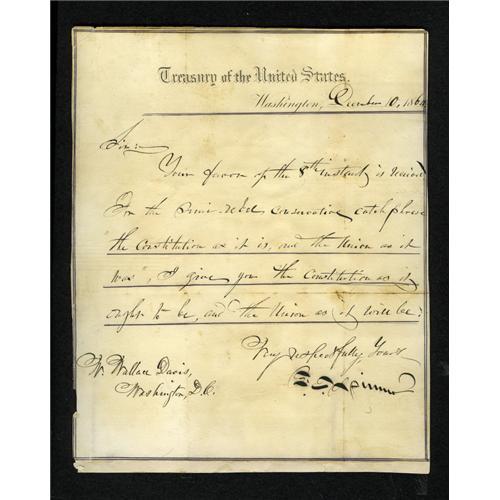 Treasury of the United States.
Washington, December 10, 186
Sir:
Your favor of the 8th instant, is received
For the semi-rebel conservative catch phrase
"the Constitution as it is, and the Union as it
was", I give you the Constitution as it
ought to be, and the Union as it will be.
Very respectfully Yours
F. E. Spinner
W. Wallace Davis,
Washington, D.C.